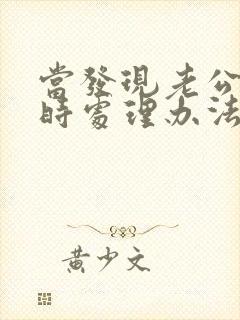 當發現老公
時處理办法
黄少文